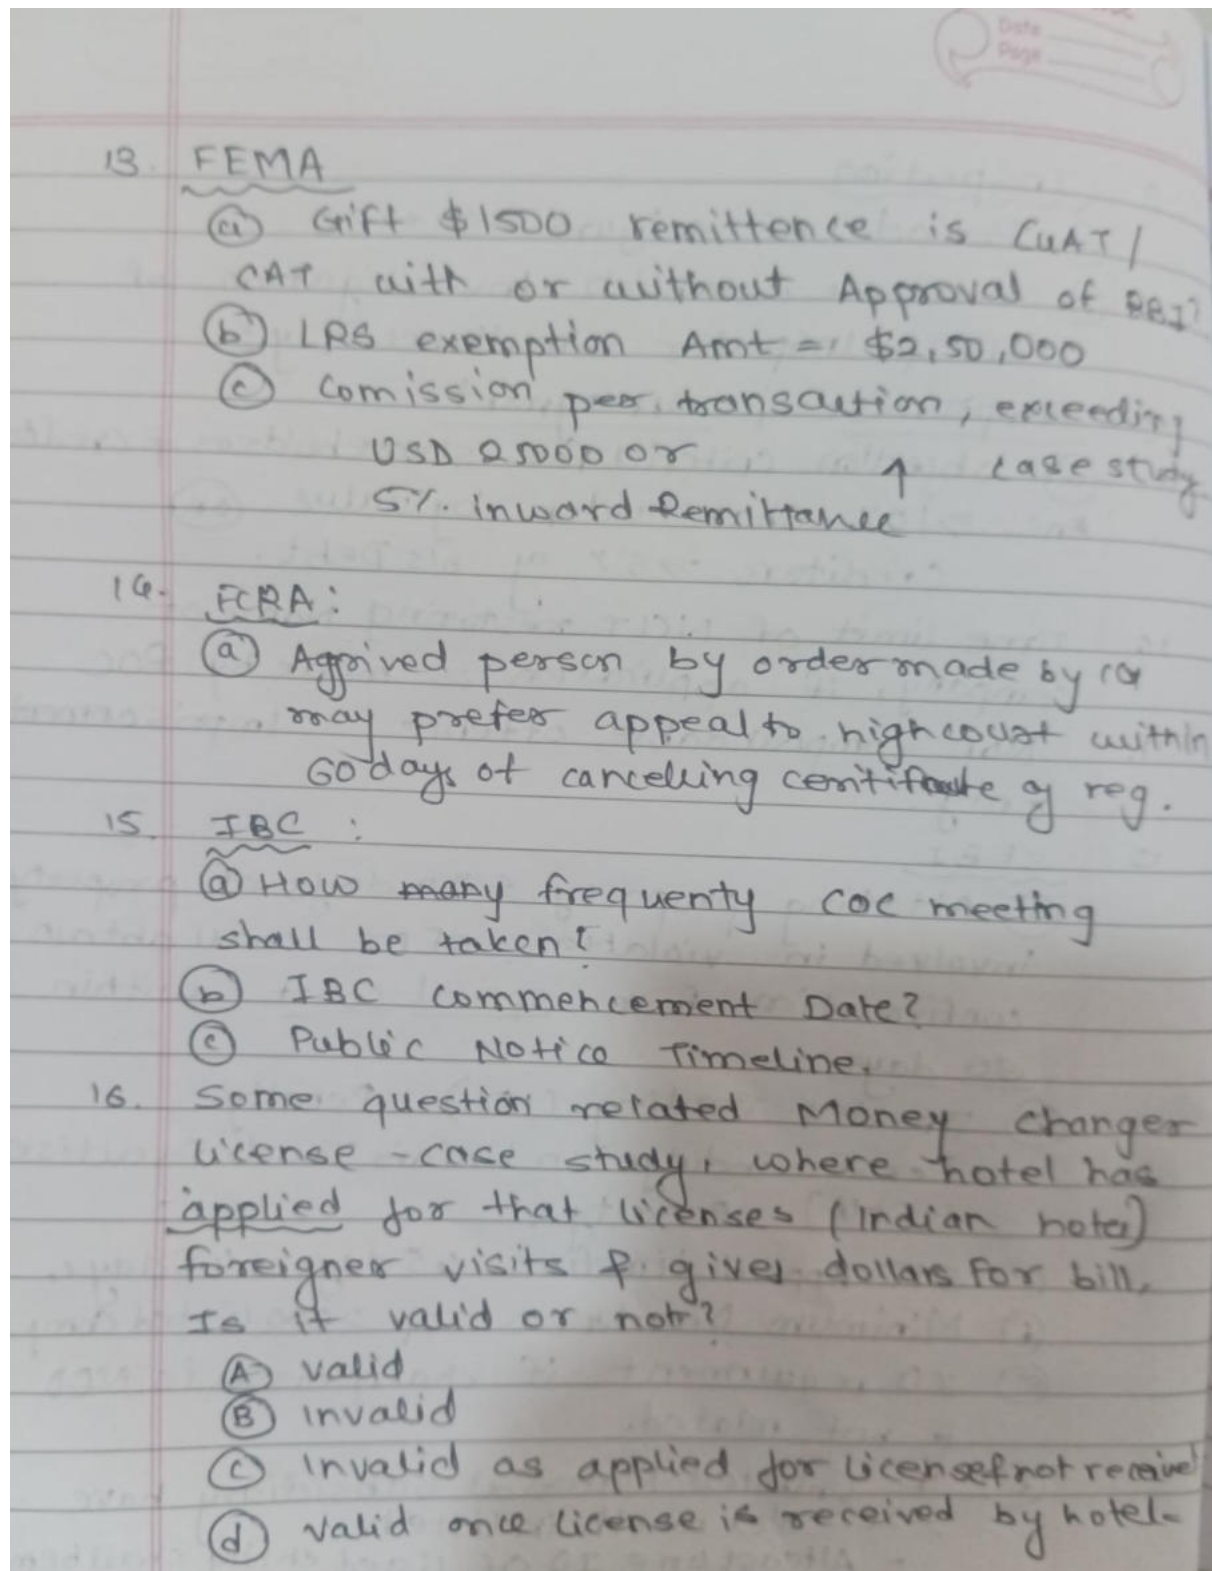 Date
Page
13. FEMA
(a) Gift $1500 remittence is CuAT/
CAT with or without Approval of RBI?
(b) LRS exemption Amt = $2,50,000
(c) Comission per transaction, exceeding
USD 25000 or ↑ case study
5% inward Remittance
14. FCRA:
(a) Aggrived person by order made by CG
may prefer appeal to high court within
60 days of cancelling certificate of reg.
15. IBC :
(a) How many frequenty COC meeting
shall be taken?
(b) IBC commencement Date?
(c) Public Notice Timeline.
16. Some question related Money changer
license - case study, where hotel has
applied for that licenses (Indian hotel)
foreigner visits & gives dollars for bill.
Is it valid or not?
(A) valid
(B) invalid
(C) Invalid as applied for license & not received
(d) valid once license is received by hotel.